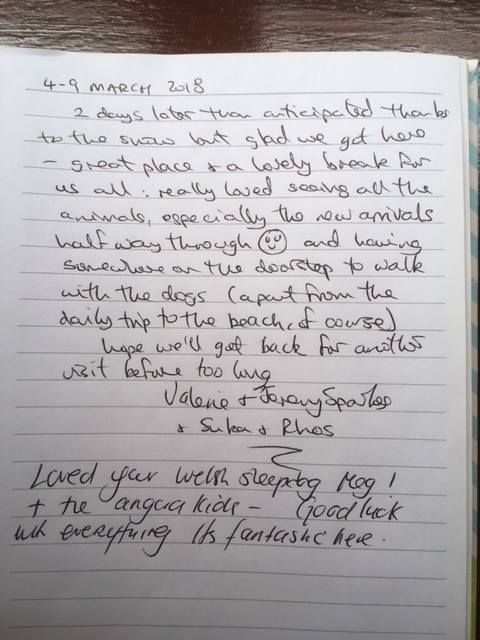 4-9 MARCH 2018
2 days later than anticipated thanks
to the snow but glad we got here
- great place & a lovely break for
us all : really loved seeing all the
animals, especially the new arrivals
half way through ☺ and having
somewhere on the doorstep to walk
with the dogs (apart from the
daily trip to the beach, of course)
hope we'll get back for another
visit before too long
Valerie & Jeremy Sparkes
& Suka & Rhos
Loved your Welsh sheepdog Meg!
+ the angora kids - Good luck
with everything Its fantastic here.